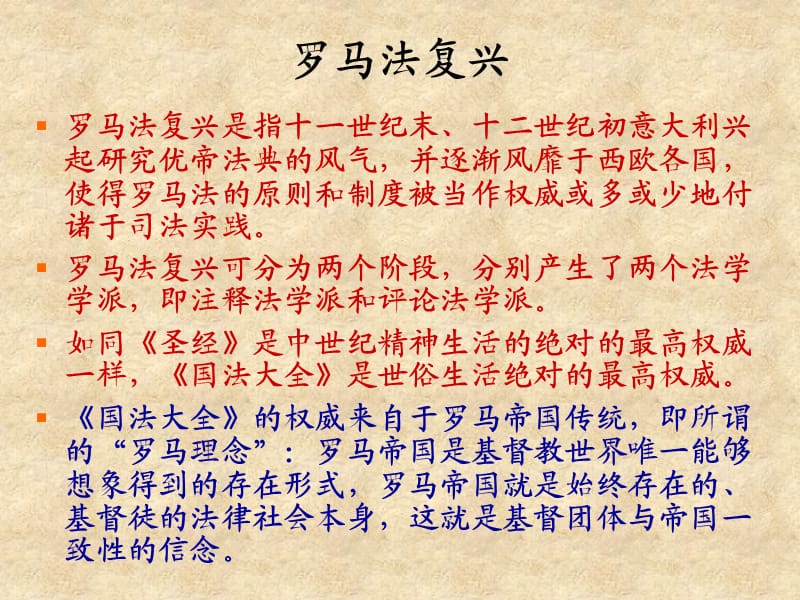 罗马法复兴
罗马法复兴是指十一世纪末、十二世纪初意大利兴
起研究优帝法典的风气，并逐渐风靡于西欧各国，
使得罗马法的原则和制度被当作权威或多或少地付
诸于司法实践。
罗马法复兴可分为两个阶段，分别产生了两个法学
学派，即注释法学派和评论法学派。
如同《圣经》是中世纪精神生活的绝对的最高权威
一样，《国法大全》是世俗生活绝对的最高权威。
《国法大全》的权威来自于罗马帝国传统，即所谓
的“罗马理念”：罗马帝国是基督教世界唯一能够
想象得到的存在形式，罗马帝国就是始终存在的、
基督徒的法律社会本身，这就是基督团体与帝国一
致性的信念。